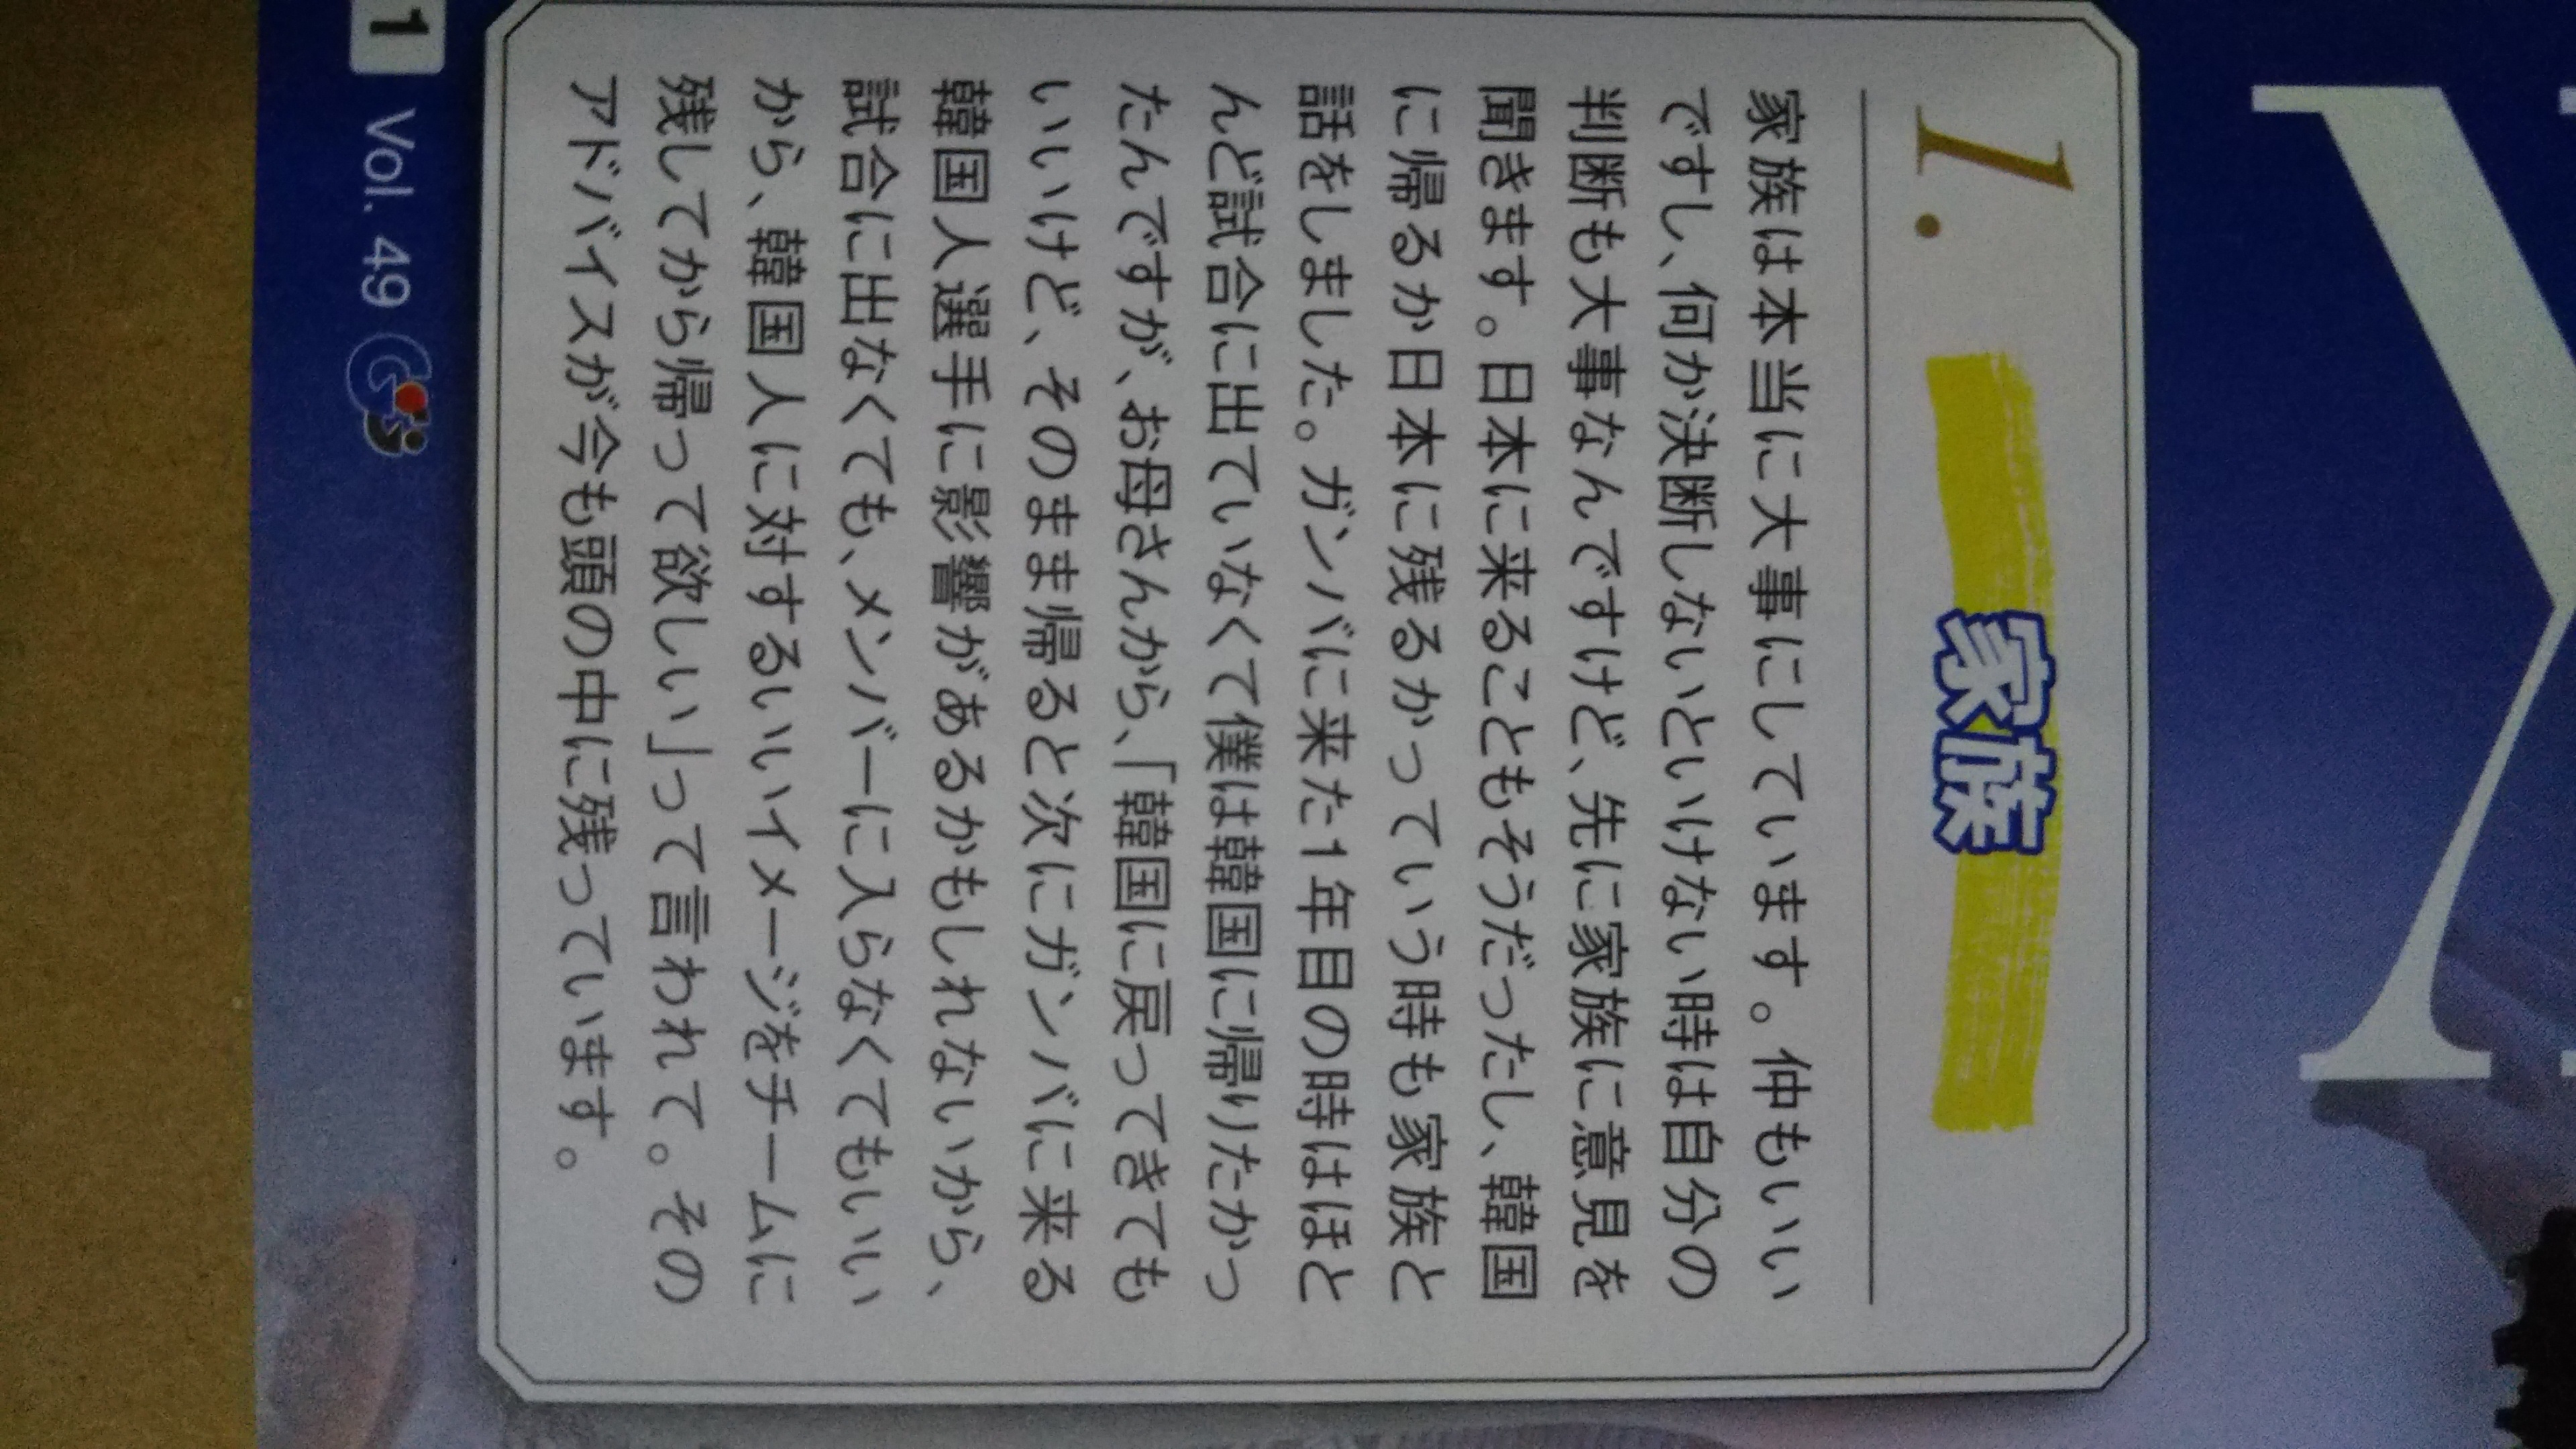 1.
家族
家族は本当に大事にしています。仲もいい
ですし、何か決断しないといけない時は自分の
判断も大事なんですけど、先に家族に意見を
聞きます。日本に来ることもそうだったし、韓国
に帰るか日本に残るかっていう時も家族と
話をしました。ガンバに来た1年目の時はほと
んど試合に出ていなくて僕は韓国に帰りたかっ
たんですが、お母さんから、「韓国に戻ってきても
いいけど、そのまま帰ると次にガンバに来る
韓国人選手に影響があるかもしれないから、
試合に出なくても、メンバーに入らなくてもいい
から、韓国人に対するいいイメージをチームに
残してから帰って欲しい」って言われて。その
アドバイスが今も頭の中に残っています。
1 Vol. 49